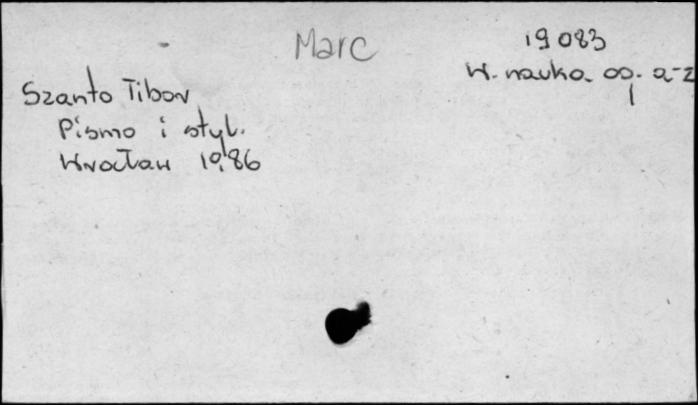 Marc
19083
W. nauka og. a-z
1
Szanto Tibor
Pismo i styl.
Wrocław 1986